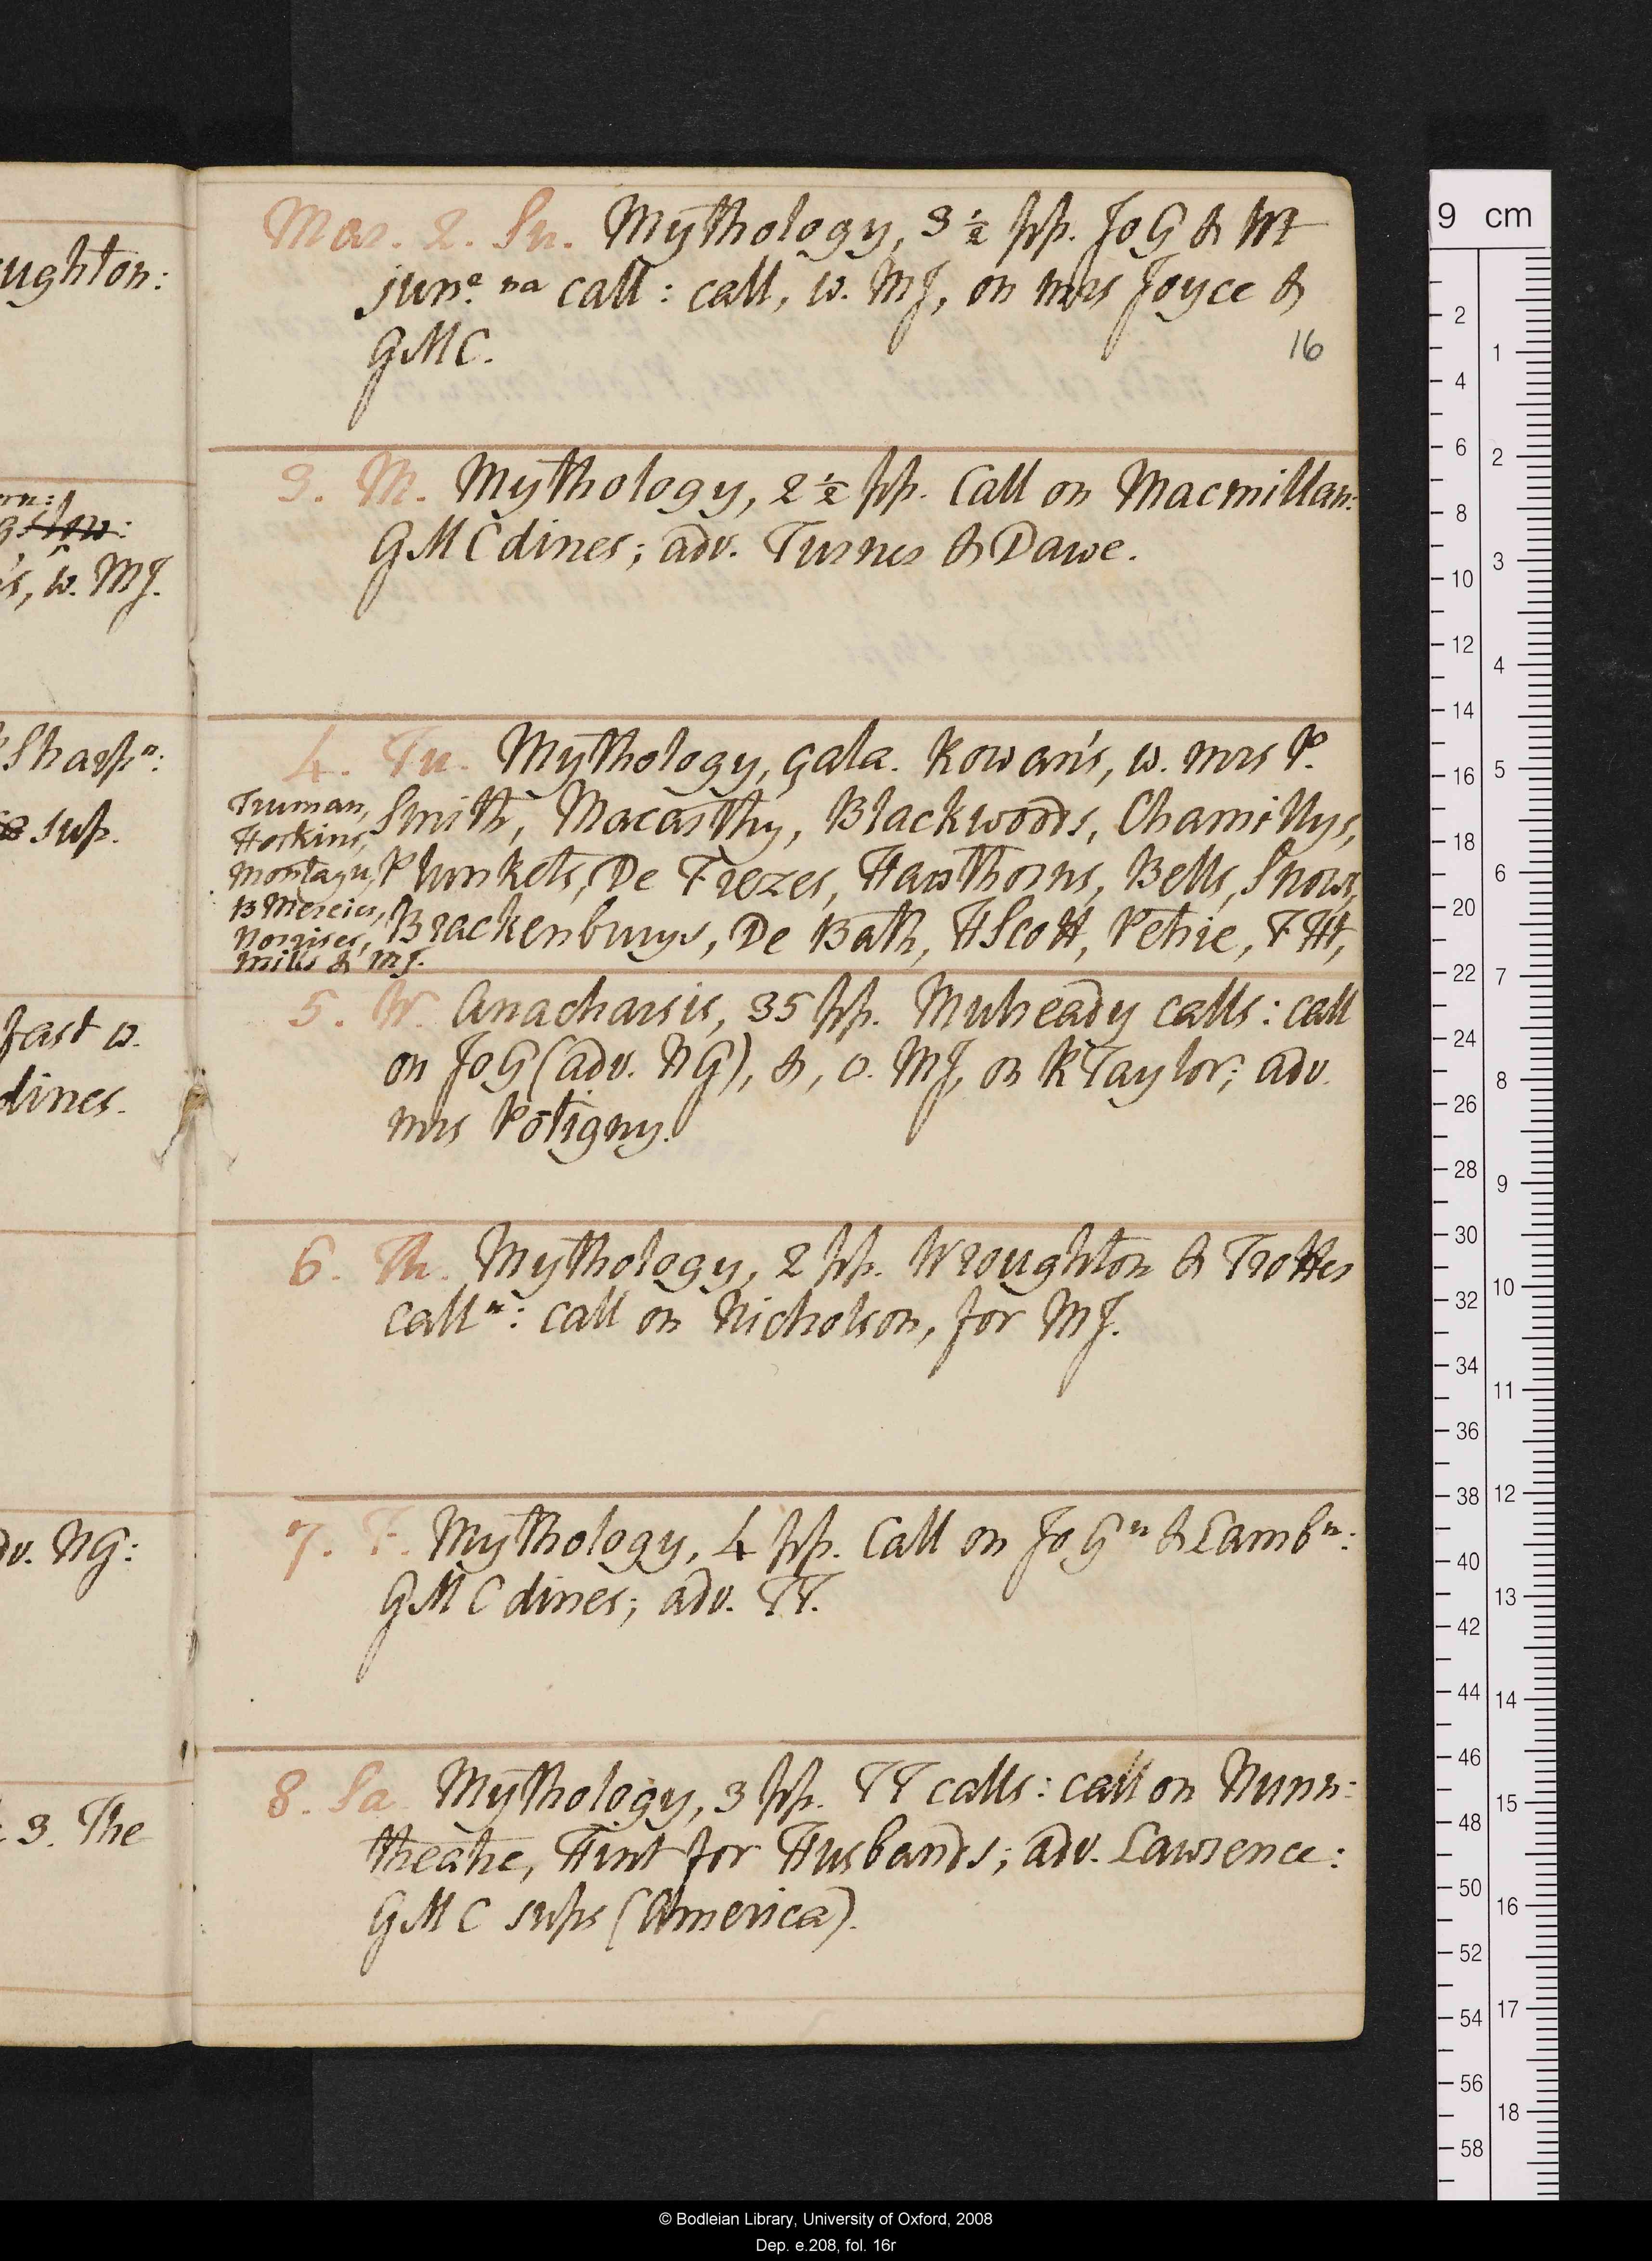 ughton:
w. MJ.
Sharp n:
sup.
fast w.
dines.
adv. NG:
3. The
Mar. 2. Su. Mythology, 3 ½ pp. JoG & Wt
junr na call: call, w. MJ, on mrs Joyce &
GMC.
16
3. M. Mythology, 2 ½ pp. Call on Macmillan:
GMC dines; adv. Turner & Dawe.
4. Tu. Mythology, çala. Rowan's, w. mrs P.
Smith, Macarthy, Blackwoods, Chamillys,
Plunkets, De Frezes, Hawthorns, Bells, Snows,
Brackenburys, De Bath, HScott, Petrie, FHt,
Truman,
Hoskins,
Montagu,
B Mercier,
Norrises,
Mills & MJ.
5. W. Anacharsis, 35 pp. Mulready calls: call
on JoG (adv. NG), &, c. MJ, on RTaylor; adv.
mrs Potigny.
6. Th. Mythology, 2 pp. Wroughton & Trotter
call n: call on Nicholson, for MJ.
7. F. Mythology, 4 pp. Call on JoG n & Lamb n:
GMC dines; adv. TT.
8. Sa. Mythology, 3 pp. TT calls: call on Nunn:
theatre, Hint for Husbands; adv. Lawrence:
GMC sups (America).
9 cm
2 4 6 8 10 12 14 16 18 20 22 24 26 28 30 32 34 36 38 40 42 44 46 48 50 52 54 56 58
1 2 3 4 5 6 7 8 9 10 11 12 13 14 15 16 17 18
© Bodleian Library, University of Oxford, 2008
Dep. e.208, fol. 16r